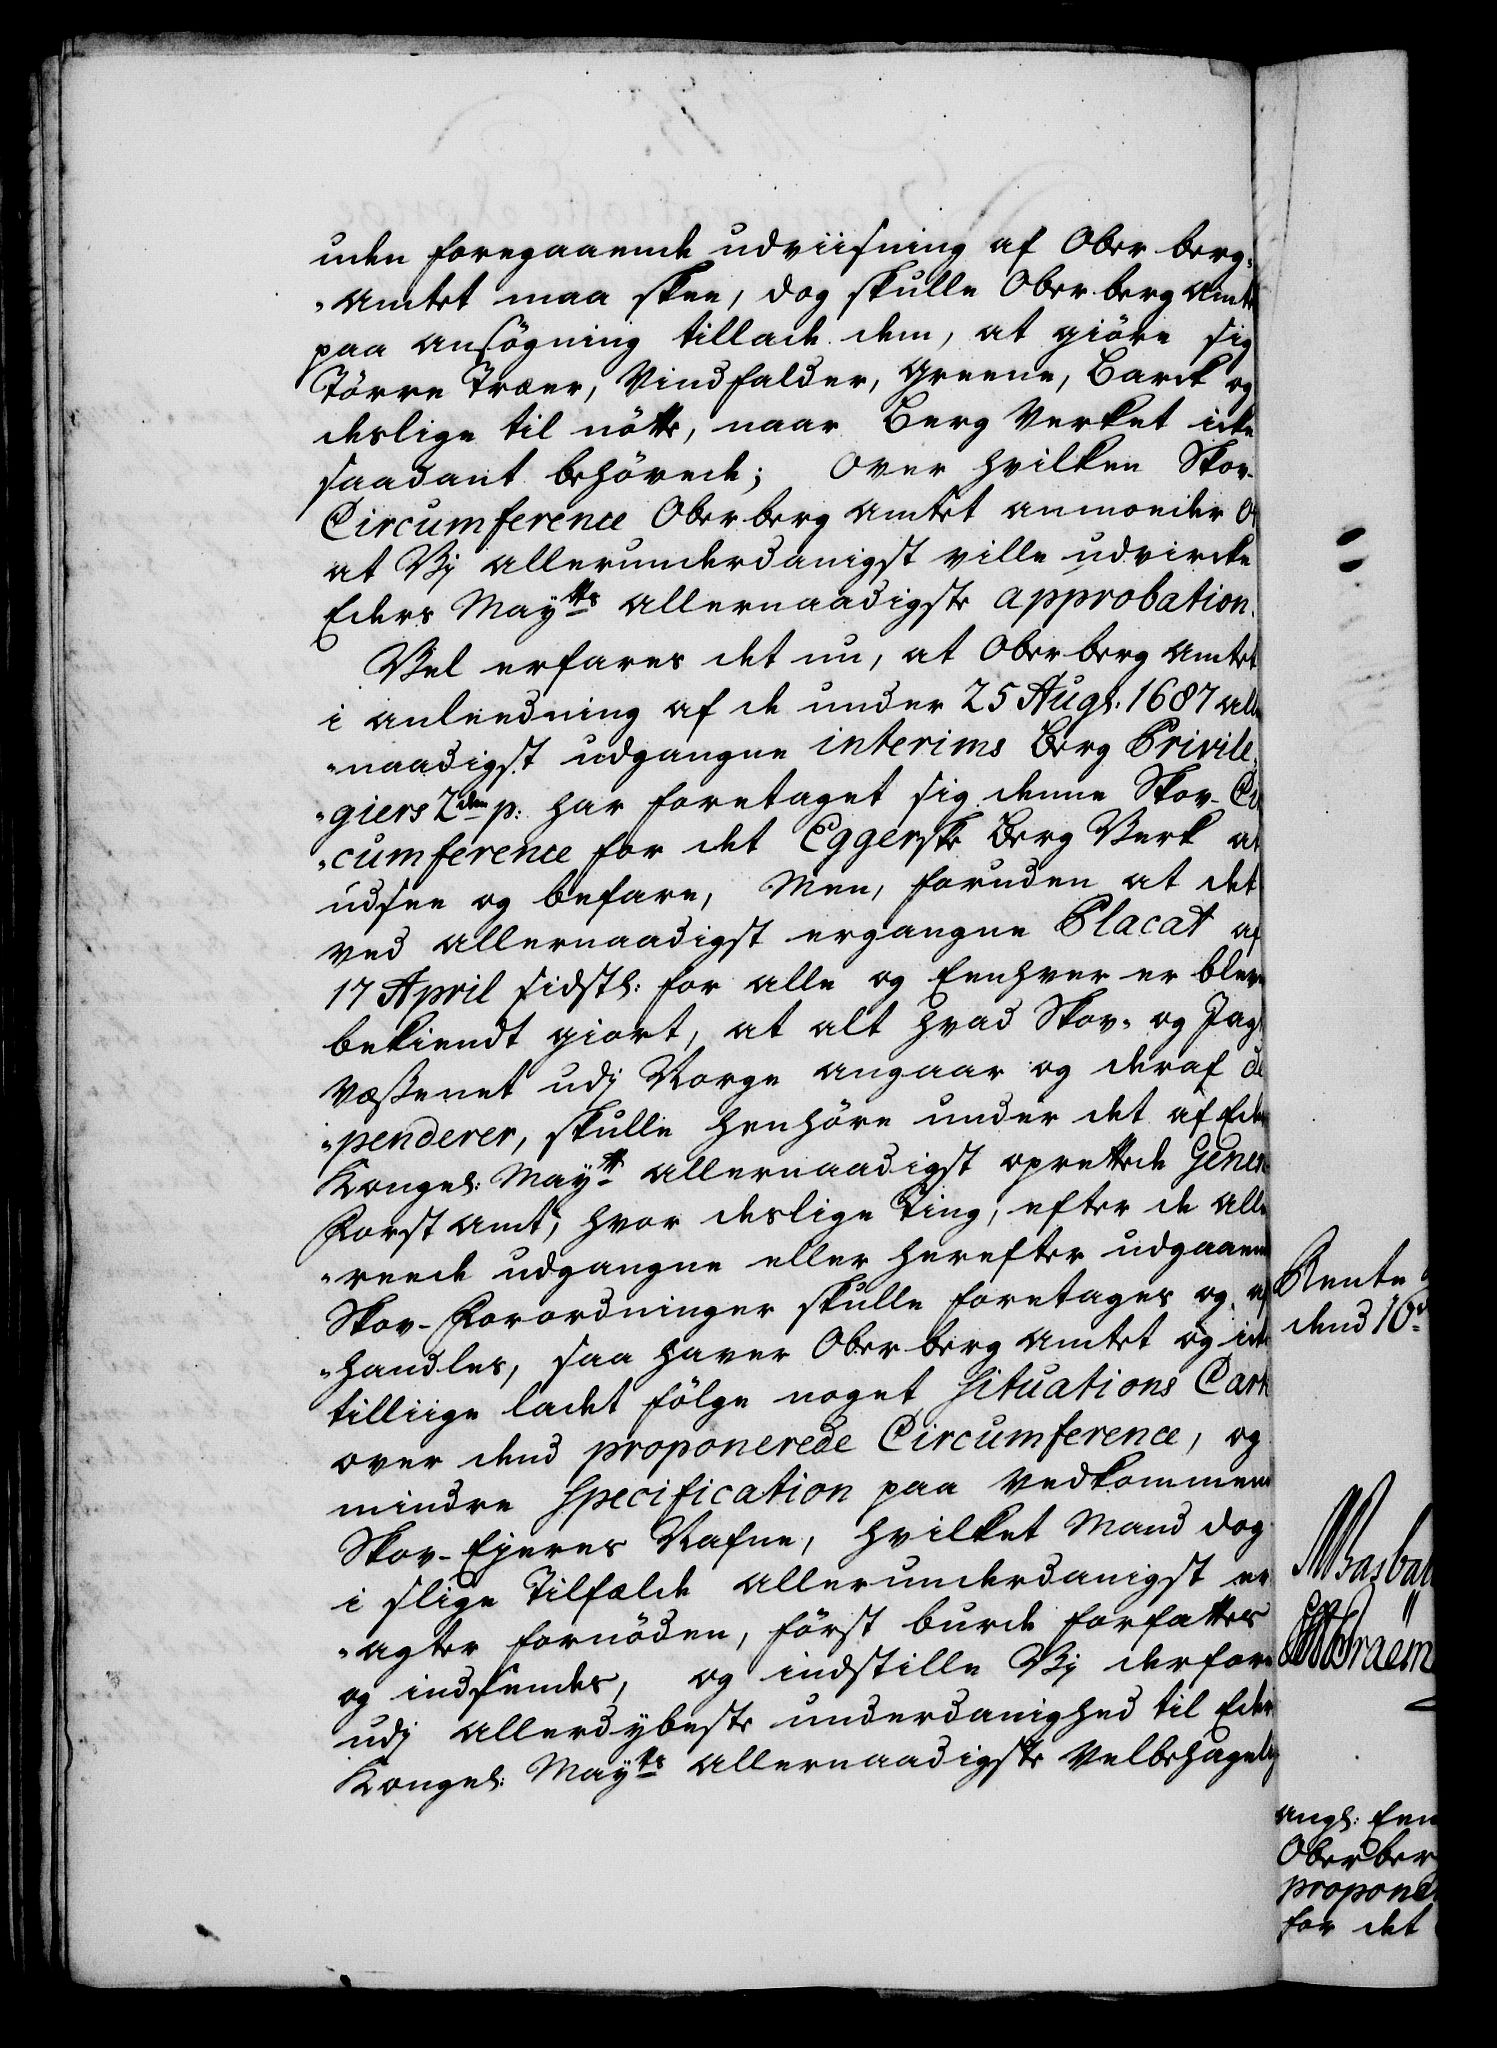 uden foregaaende udviisning af Ober berg-
-Amtet maa skee, dog skulle Ober berg Amte
paa ansøgning tillade dem, at giöre sig
Törre Træer, Vindfalder, Greene, Barck og
deslige til nötte, naar Berg Verket icke
saadant behövede; Over hvilken Skov-
Circumference Ober berg Amtet anmoder O
at Vj allerunderdanigst ville udvircke
Eders Maytts allernaadigste approbation.
Vel erfares det nu, at Ober berg Amtet
i anleedning af de under 25 Augs: 1687 alle
-naadigst udgangne interims Berg Privile-
-giers 2den p: har foretaget sig denne Skov-Cir
-cumference for det Eggerske Berg Verk at
udsee og befare, Men, foruden at det
ved allernaadigst ergangne Placat af
17 April sidstl: for alle og Eenhver er blev
bekiendt giort, at alt hvad Skov- og Jagt
Væßenet udj Norge angaar og deraf de
-penderer, skulle henhöre under det af Eder
Kongel: Maytt allernaadigst oprettede Gener
Forst Amt, hvor deslige Ting, efter de alle
-reede udgangne eller herefter udgaaen
Skov-Forordninger skulle foretages og af
-handles, saa haver Ober berg Amtet og icke
tilliige ladet fölge noget Situations Cart
over dend proponerede Circumference, og
mindre Specification paa Vedkommen
Skov-Ejeres Nafne, hvilket Mand dog
i slige Tilfælde allerunderdanigst er
-agter fornöden, först burde forfattes
og indsendes, og indstille Vj derfore
udj allerdybeste underdanighed til Eders
Kongel: Mayts allernaadigste Velbehagelig
Rente
dend 10
angl: Een
Ober ber
propone
for det